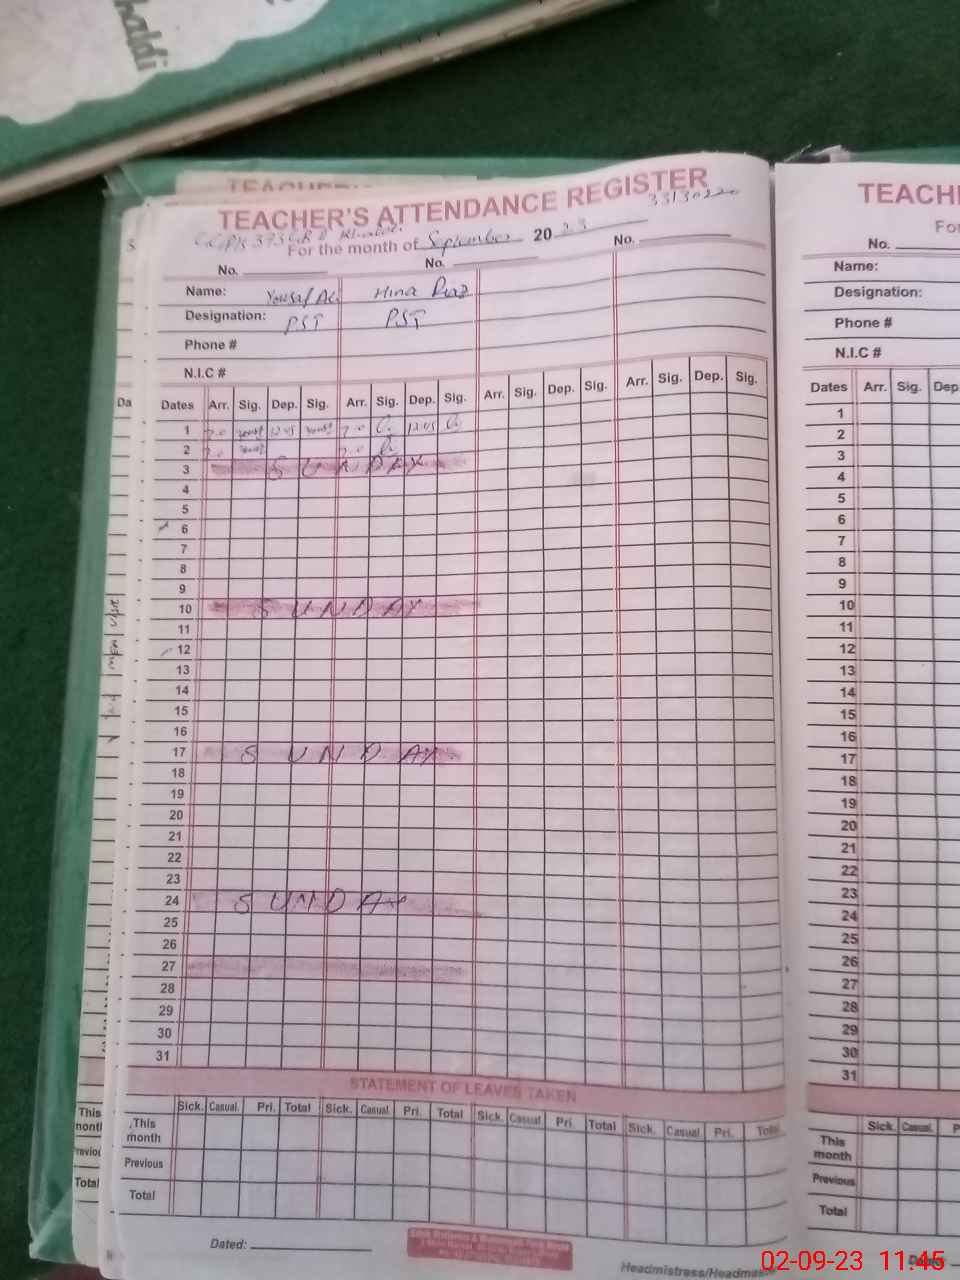 haldi
TEACHER'S ATTENDANCE REGISTER
33130220
For the month of September 2023
No. No. No.
Name: Yousaf Ali Hina Riaz
Designation: PST PST
Phone #
N.I.C #
Dates Arr. Sig. Dep. Sig. Arr. Sig. Dep. Sig. Arr. Sig. Dep. Sig. Arr. Sig. Dep. Sig.
1 7.0 Yousaf 12.05 Yousaf 7.0 12.05
2 7.0 Yousaf 7.0
3 SUNDAY
4
5
6
7
8
9
10 SUNDAY
11
12
13
14
15
16
17 SUNDAY
18
19
20
21
22
23
24 SUNDAY
25
26
27
28
29
30
31
STATEMENT OF LEAVES TAKEN
Sick. Casual. Pri. Total Sick. Casual. Pri. Total Sick. Casual. Pri. Total Sick. Casual. Pri. Total
This month
Previous
Total
Dated:
Headmistress/Headmaster
TEACH
For
No.
Name:
Designation:
Phone #
N.I.C #
Dates Arr. Sig. Dep
1
2
3
4
5
6
7
8
9
10
11
12
13
14
15
16
17
18
19
20
21
22
23
24
25
26
27
28
29
30
31
Sick. Casual. P
This month
Previous
Total
02-09-23 11:45